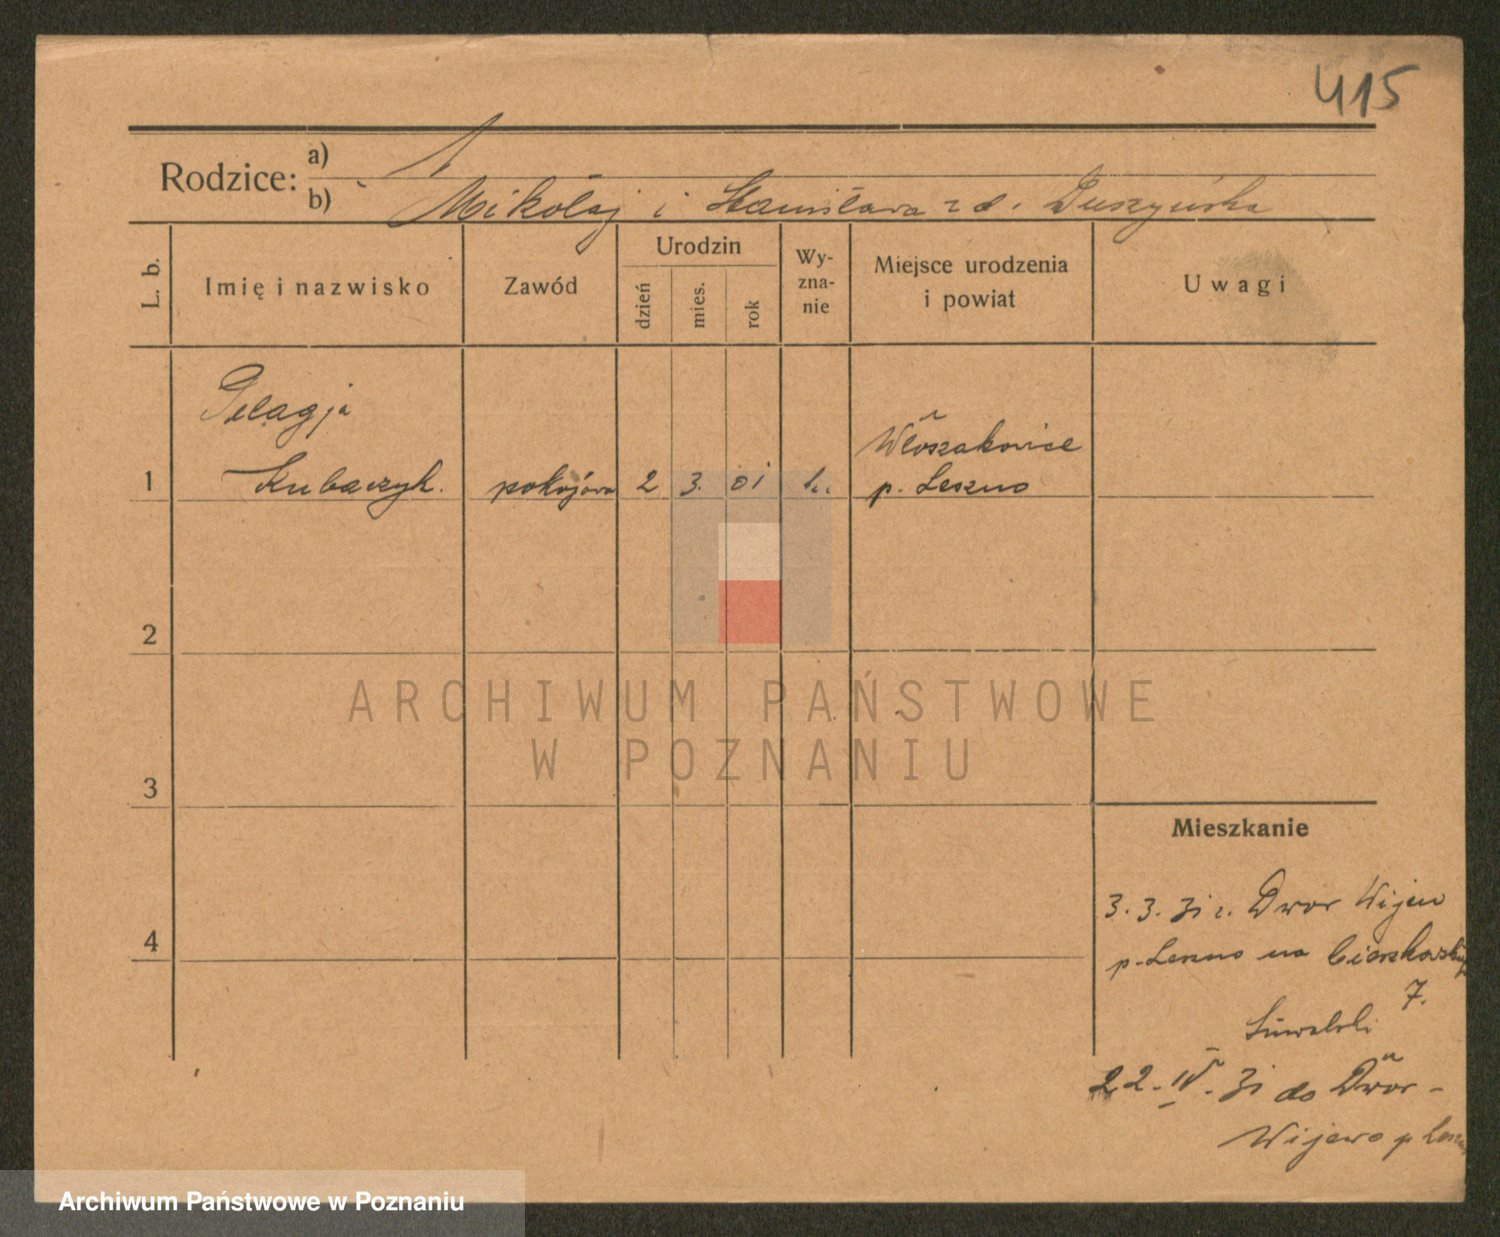 415
Rodzice: a)
b) Mikołaj i Stanisława z d. Duszyńska
L. b.
Imię i nazwisko
Zawód
Urodzin
dzień
mies.
rok
Wy-
zna-
nie
Miejsce urodzenia
i powiat
Uwagi
Pelagja
1 Kubaczyk. pokojowa 2 3. 01 k.
Włoszakowice
p. Leszno
2
3
4
Mieszkanie
3. 3. 31 r. Dwor Wijew
p. Leszno na
7.
22. IV. 31 do Dwór -
Wijewo p Leszno
ARCHIWUM PAŃSTWOWE
W POZNANIU
Archiwum Państwowe w Poznaniu